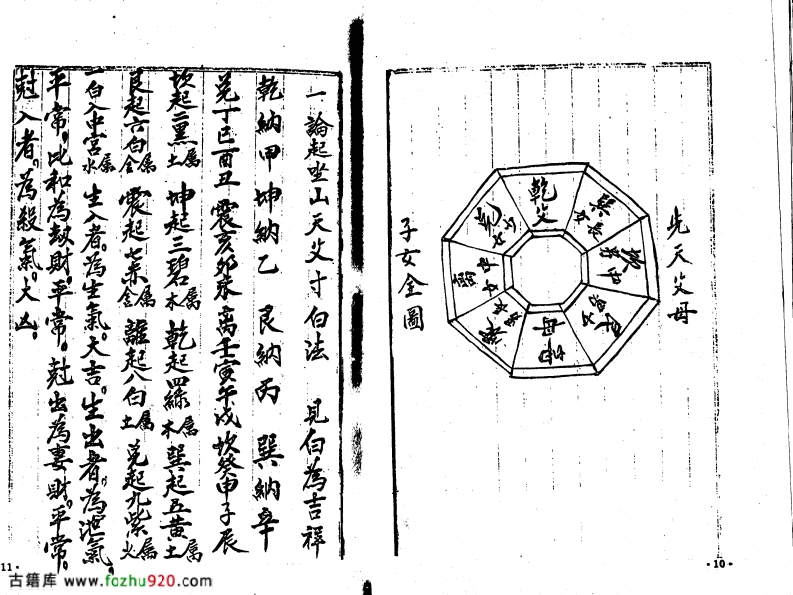 先天父母
乾父
巽長女
坎中男
艮少男
坤母
震長男
離中女
兌少女
子女全圖
·10·
一論起坐山天父寸白法　見白為吉祥
乾納甲坤納乙　艮納丙　巽納辛
兌丁巳酉丑　震亥卯未　离壬寅午戌　坎癸申子辰
坎起二黑属土　坤起三碧属木　乾起四綠属木　巽起五黃属土
艮起六白属金　震起七赤属金　離起八白属土　兌起九紫属火
一白入中宮属水　生入者。為生氣。大吉。生出者。為泄氣。
平常。比和為刼財。平常。尅出為妻財。平常。
尅入者。為殺氣。大凶。
11·
古籍库 www.fozhu920.com